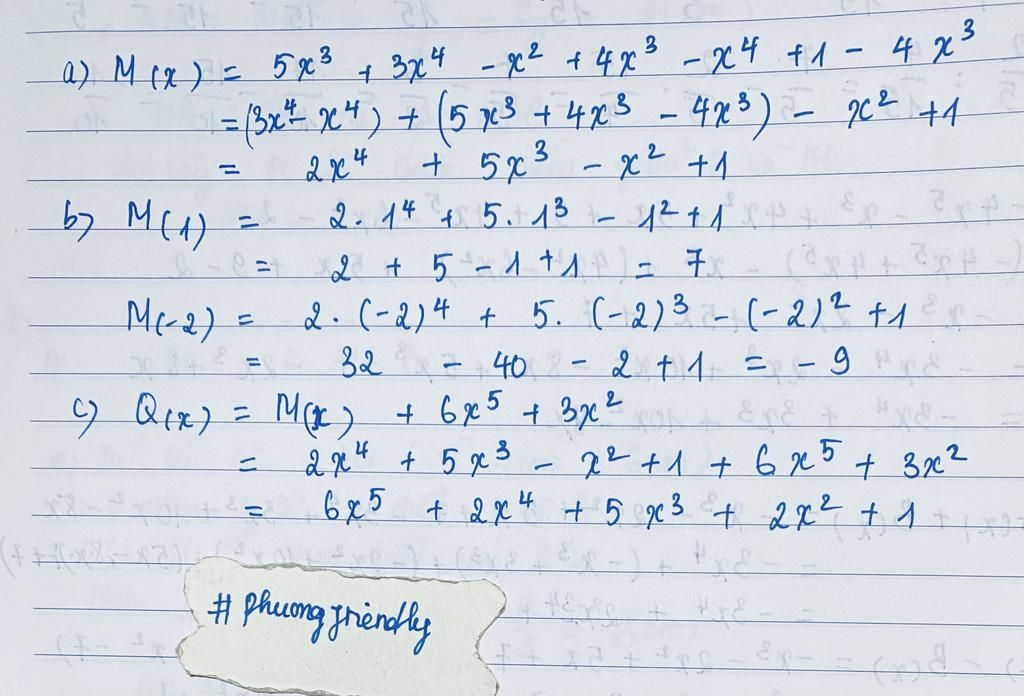 a) M(x) = 5x³ + 3x⁴ - x² + 4x³ - x⁴ + 1 - 4x³
= (3x⁴ - x⁴) + (5x³ + 4x³ - 4x³) - x² + 1
= 2x⁴ + 5x³ - x² + 1
b) M(1) = 2.1⁴ + 5.1³ - 1² + 1
= 2 + 5 - 1 + 1 = 7
M(-2) = 2.(-2)⁴ + 5.(-2)³ - (-2)² + 1
= 32 - 40 - 2 + 1 = - 9
c) Q(x) = M(x) + 6x⁵ + 3x²
= 2x⁴ + 5x³ - x² + 1 + 6x⁵ + 3x²
= 6x⁵ + 2x⁴ + 5x³ + 2x² + 1
# phuongfriendly